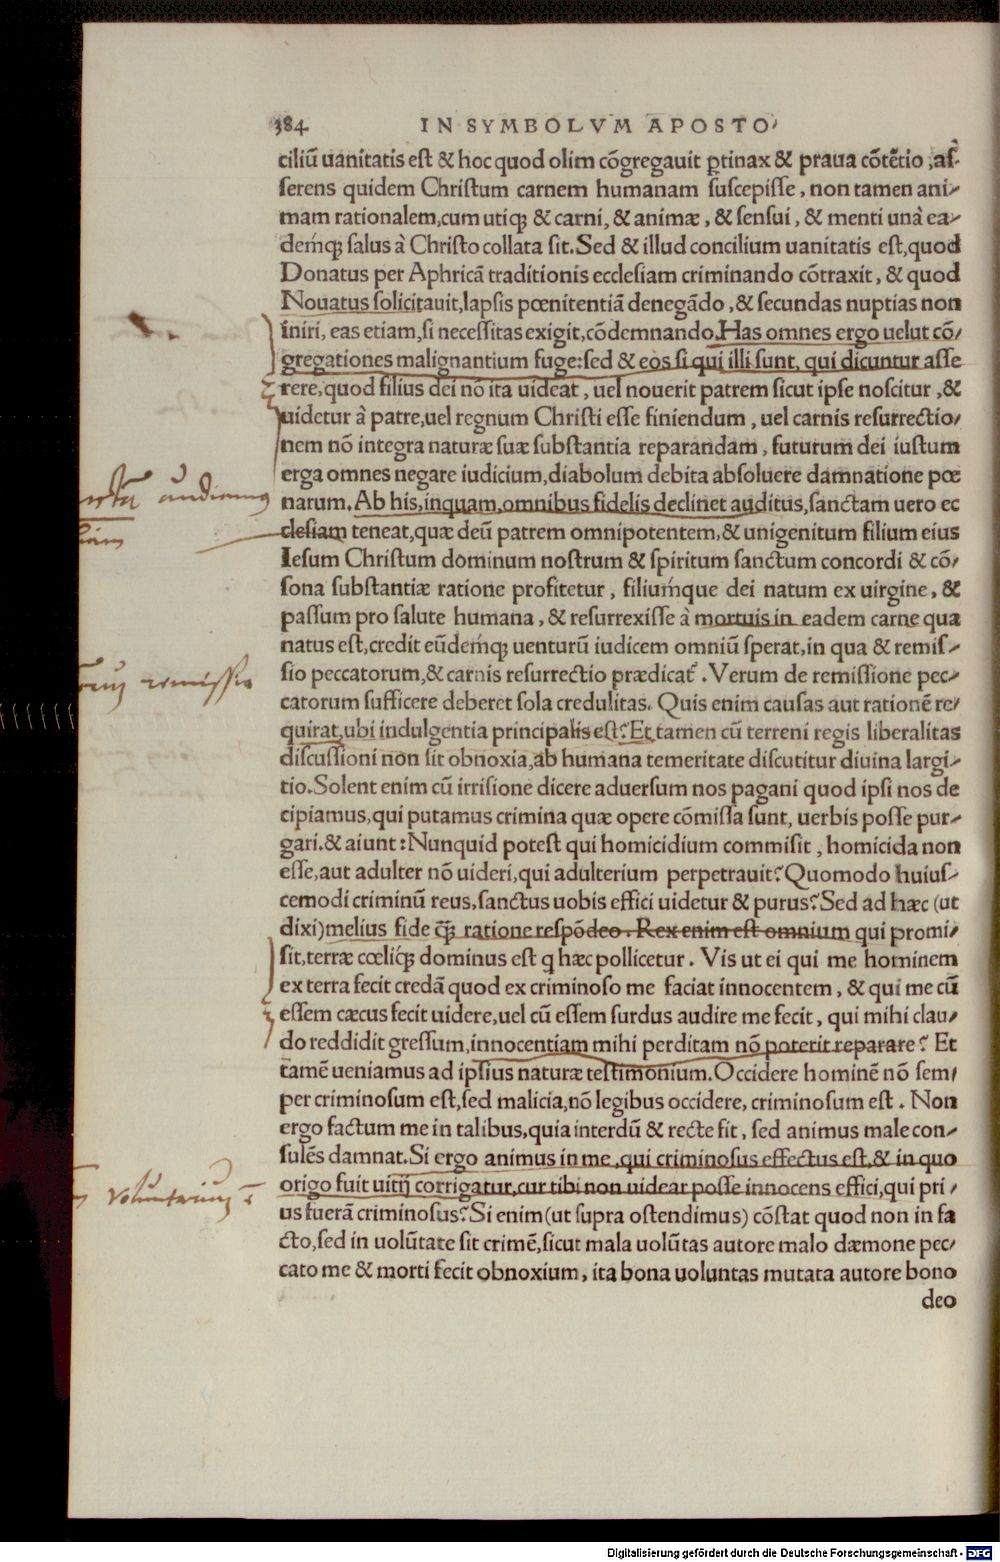 384 IN SYMBOLVM APOSTO/
ciliū uanitatis est & hoc quod olim cōgregauit ꝑtinax & praua cōtētio, as-
serens quidem Christum carnem humanam suscepisse, non tamen ani-
mam rationalem, cum utiqꝫ & carni, & animæ, & sensui, & menti unà ea-
deḿqꝫ salus à Christo collata sit. Sed & illud concilium uanitatis est, quod
Donatus per Aphricā traditionis ecclesiam criminando cōtraxit, & quod
Nouatus solicitauit, lapsis pœnitentiā denegādo, & secundas nuptias non
iniri, eas etiam, si necessitas exigit, cōdemnando. Has omnes ergo uelut cō/
gregationes malignantium fuge: sed & eos si qui illi sunt, qui dicuntur asse
rere, quod filius dei nō ita uideat, uel nouerit patrem sicut ipse noscitur, &
uidetur à patre, uel regnum Christi esse finiendum, uel carnis resurrectio/
nem nō integra naturæ suæ substantia reparandam, futurum dei iustum
erga omnes negare iudicium, diabolum debita absoluere damnatione pœ
narum. Ab his, inquam, omnibus fidelis declinet auditus, sanctam uero ec
clesiam teneat, quæ deū patrem omnipotentem, & unigenitum filium eius
Iesum Christum dominum nostrum & spiritum sanctum concordi & cō/
sona substantiæ ratione profitetur, filiuḿque dei natum ex uirgine, &
passum pro salute humana, & resurrexisse à mortuis in eadem carne qua
natus est, credit eūdeḿqꝫ uenturū iudicem omniū sperat, in qua & remis-
sio peccatorum, & carnis resurrectio prædicat᷑. Verum de remissione pec-
catorum sufficere deberet sola credulitas. Quis enim causas aut rationē re/
quirat, ubi indulgentia principalis est? Et tamen cū terreni regis liberalitas
discussioni non sit obnoxia, ab humana temeritate discutitur diuina largi-
tio. Solent enim cū irrisione dicere aduersum nos pagani quod ipsi nos de
cipiamus, qui putamus crimina quæ opere cōmissa sunt, uerbis posse pur-
gari. & aiunt: Nunquid potest qui homicidium commisit, homicida non
esse, aut adulter nō uideri, qui adulterium perpetrauit? Quomodo huius-
cemodi criminū reus, sanctus uobis effici uidetur & purus? Sed ad hæc (ut
dixi) melius fide q̄ꝫ ratione respōdeo. Rex enim est omnium qui promi/
sit, terræ cœliq́ꝫ dominus est q hæc pollicetur. Vis ut ei qui me hominem
ex terra fecit credā quod ex criminoso me faciat innocentem, & qui me cū
essem cæcus fecit uidere, uel cū essem surdus audire me fecit, qui mihi clau/
do reddidit gressum, innocentiam mihi perditam nō poterit reparare? Et
tamē ueniamus ad ipsius naturæ testimonium. Occidere hominē nō sem/
per criminosum est, sed malicia, nō legibus occidere, criminosum est. Non
ergo factum me in talibus, quia interdū & recte fit, sed animus male con-
sulēs damnat. Si ergo animus in me, qui criminosus effectus est, & in quo
origo fuit uitij corrigatur, cur tibi non uidear posse innocens effici, qui pri/
us fuerā criminosus? Si enim (ut supra ostendimus) cōstat quod non in fa
cto, sed in uolūtate sit crimē, sicut mala uolūtas autore malo dæmone pec/
cato me & morti fecit obnoxium, ita bona uoluntas mutata autore bono
deo
remissio
voluntarium
Digitalisierung gefördert durch die Deutsche Forschungsgemeinschaft - DFG